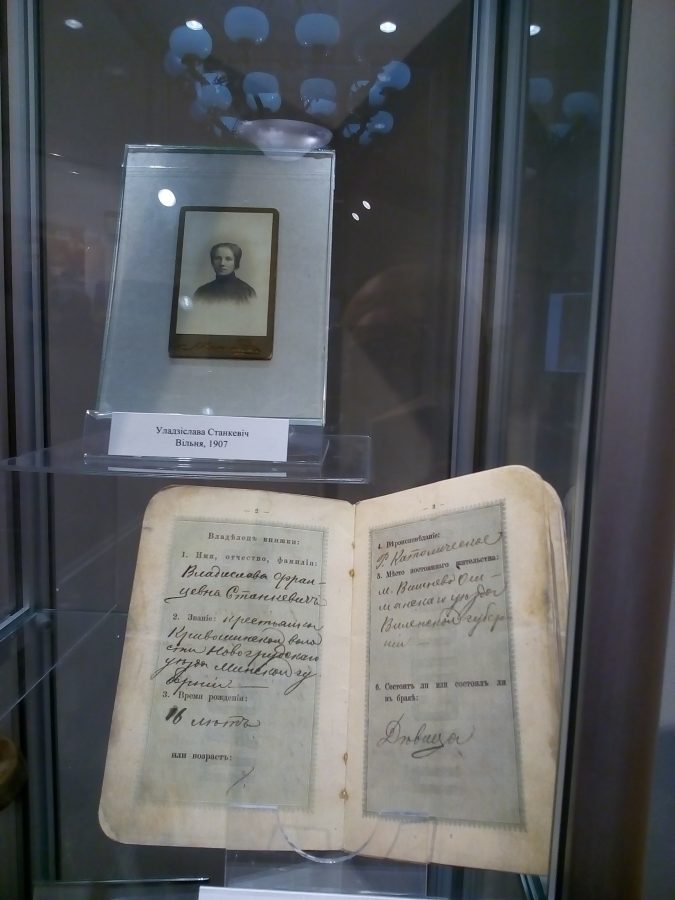 Уладзіслава Станкевіч
Вільня, 1907
— 2 —
Владѣлецъ книжки:
1. Имя, отчество, фамилія:
Владислава Фран-
цевна Станкевичъ
2. Званіе: крестьянка
Кривошинской воло
сти Новогрудскаго
уѣзда Минской гу
берніи —
3. Время рожденія:
16 лютъ
или возрастъ:
— 3 —
4. Вѣроисповѣданіе:
Р. Католическое
5. Мѣсто постояннаго жительства:
м. Вишнево Ош-
мянскаго уѣзда
Виленской губер
ніи —
6. Состоитъ ли или состоялъ ли
въ бракѣ:
Дѣвица